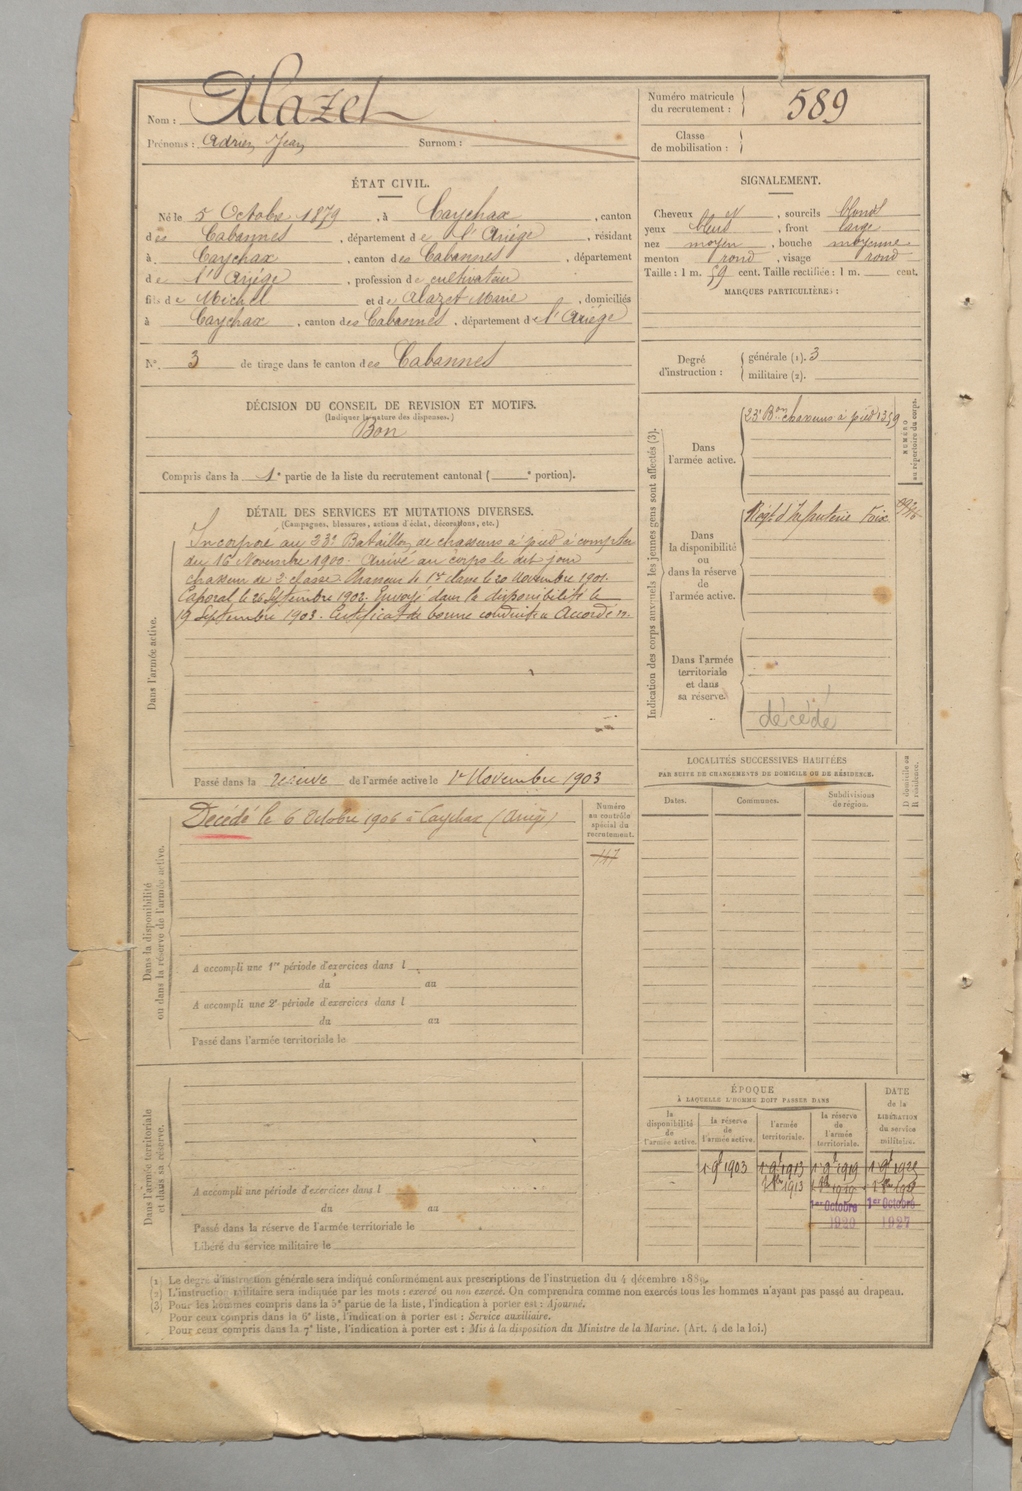 Nom : Alazet
Prénoms : Adrien Jean Surnom :
Numéro matricule du recrutement : 589
Classe de mobilisation :
ÉTAT CIVIL.
Né le 5 Octobre 1879, à Caychax, canton
des Cabannes, département de l'Ariège, résidant
à Caychax, canton des Cabannes, département
de l'Ariège, profession de cultivateur
fils de Michel et de Alazet Marie, domiciliés
à Caychax, canton des Cabannes, département de l'Ariège
N° 3 de tirage dans le canton des Cabannes
SIGNALEMENT.
Cheveux , sourcils blond
yeux bleus, front large
nez moyen, bouche moyenne
menton rond, visage rond
Taille : 1 m. 59 cent. Taille rectifiée : 1 m. cent.
MARQUES PARTICULIÈRES :
Degré d'instruction : générale (1). 3
militaire (2).
DÉCISION DU CONSEIL DE REVISION ET MOTIFS.
(Indiquer la nature des dispenses.)
Bon
Compris dans la 1e partie de la liste du recrutement cantonal ( e portion).
DÉTAIL DES SERVICES ET MUTATIONS DIVERSES.
(Campagnes, blessures, actions d'éclat, décorations, etc.)
Dans l'armée active.
Incorporé au 23e Bataillon de chasseurs à pied à compter
du 16 Novembre 1900. Arrivé au corps le dit jour
chasseur de 2e classe. Chasseur de 1re classe le 20 novembre 1901.
Caporal le 26 Septembre 1902. Envoyé dans la disponibilité le
19 Septembre 1903. Certificat de bonne conduite Accordé
Passé dans la réserve de l'armée active le 1er Novembre 1903
Indication des corps auxquels les jeunes gens sont affectés (3).
Dans l'armée active.
23e Bon chasseurs à pied 1359
NUMÉRO au répertoire du corps.
Dans la disponibilité ou dans la réserve de l'armée active.
Régt d'Infanterie Foix
Dans l'armée territoriale et dans sa réserve.
décédé
Dans la disponibilité ou dans la réserve de l'armée active.
Décédé le 6 Octobre 1906 à Caychax (Ariège)
Numéro au contrôle spécial du recrutement.
147
A accompli une 1re période d'exercices dans l
du au
A accompli une 2e période d'exercices dans l
du au
Passé dans l'armée territoriale le
LOCALITÉS SUCCESSIVES HABITÉES
PAR SUITE DE CHANGEMENTS DE DOMICILE OU DE RÉSIDENCE.
Dates. Communes. Subdivisions de région. D domicile ou R résidence.
Dans l'armée territoriale et dans sa réserve.
A accompli une période d'exercices dans l
du au
Passé dans la réserve de l'armée territoriale le
Libéré du service militaire le
ÉPOQUE
À LAQUELLE L'HOMME DOIT PASSER DANS
DATE de la LIBÉRATION du service militaire.
la disponibilité de l'armée active. la réserve de l'armée active. l'armée territoriale. la réserve de l'armée territoriale.
1 9bre 1903 1 9bre 1913 1 9bre 1919
1913
1er Octobre 1er Octobre
1920 1927
(1) Le degré d'instruction générale sera indiqué conformément aux prescriptions de l'instruction du 4 décembre 1889.
(2) L'instruction militaire sera indiquée par les mots : exercé ou non exercé. On comprendra comme non exercés tous les hommes n'ayant pas passé au drapeau.
(3) Pour les hommes compris dans la 5e partie de la liste, l'indication à porter est : Ajourné.
Pour ceux compris dans la 6e liste, l'indication à porter est : Service auxiliaire.
Pour ceux compris dans la 7e liste, l'indication à porter est : Mis à la disposition du Ministre de la Marine. (Art. 4 de la loi.)